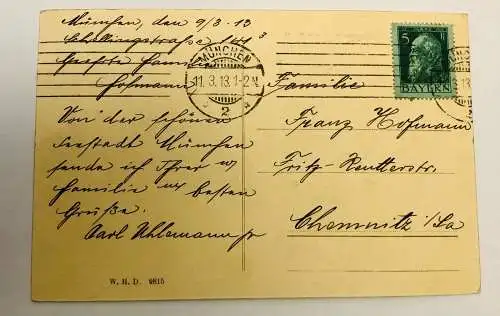 München, den 9/3.13
Schellingstrasse
Geehrte Familie
Hofmann
Von der schönen
München
sende ich Ihrer w
Familie besten
Grüße.
Carl Uhlemann jr
W. H. D. 9815
MÜNCHEN
11.3.13.1-2 N
2
5
BAYERN
Familie
Franz Hofmann
Fritz-Reuterstr.
Chemnitz i/Sa